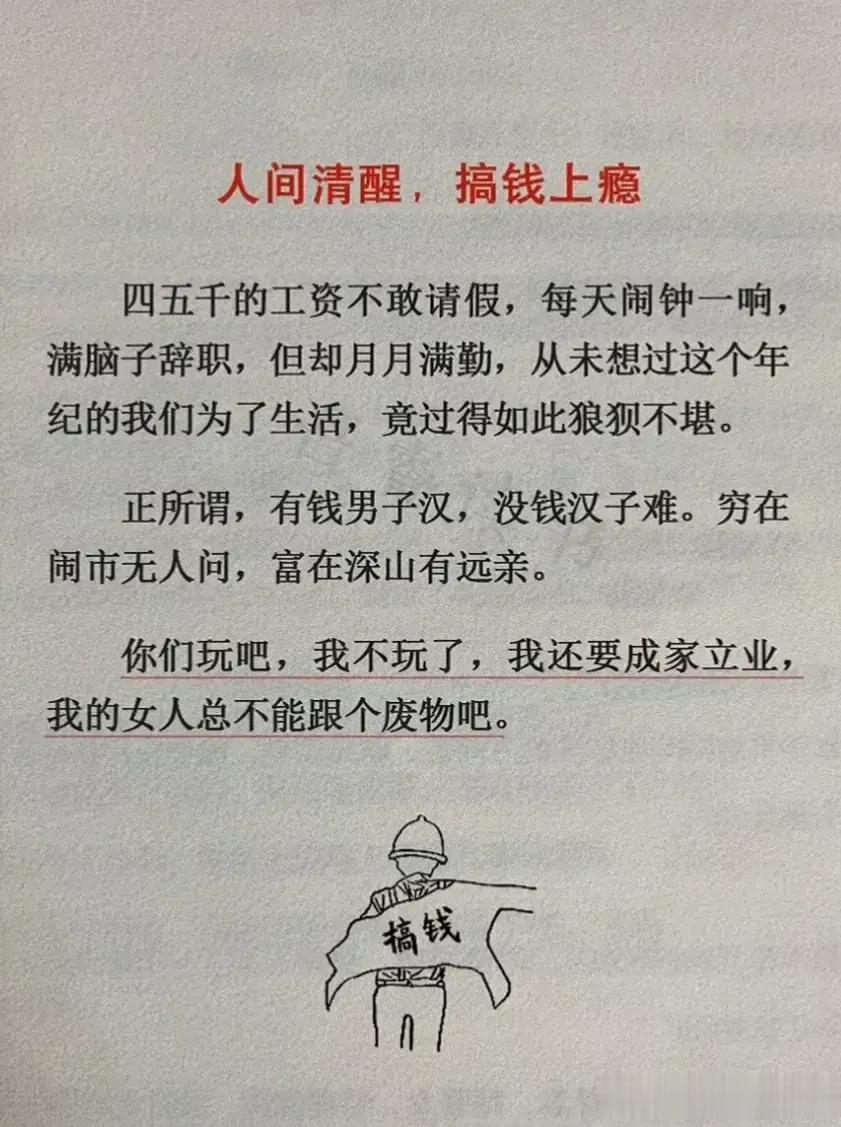 人间清醒，搞钱上瘾
四五千的工资不敢请假，每天闹钟一响，
满脑子辞职，但却月月满勤，从未想过这个年
纪的我们为了生活，竟过得如此狼狈不堪。
正所谓，有钱男子汉，没钱汉子难。穷在
闹市无人问，富在深山有远亲。
你们玩吧，我不玩了，我还要成家立业，
我的女人总不能跟个废物吧。
搞钱